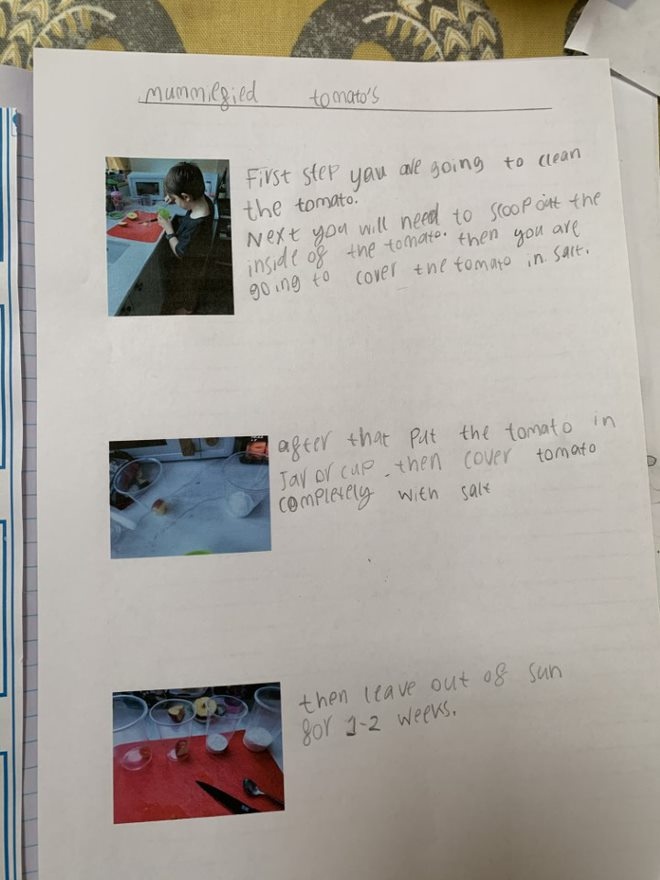 mummifgied tomato's
First step you are going to clean
the tomato.
Next you will need to scoop out the
inside of the tomato. then you are
going to cover the tomato in salt.
after that put the tomato in
Jar or cup. then cover tomato
completely with salt
then leave out of sun
for 1-2 weeks.